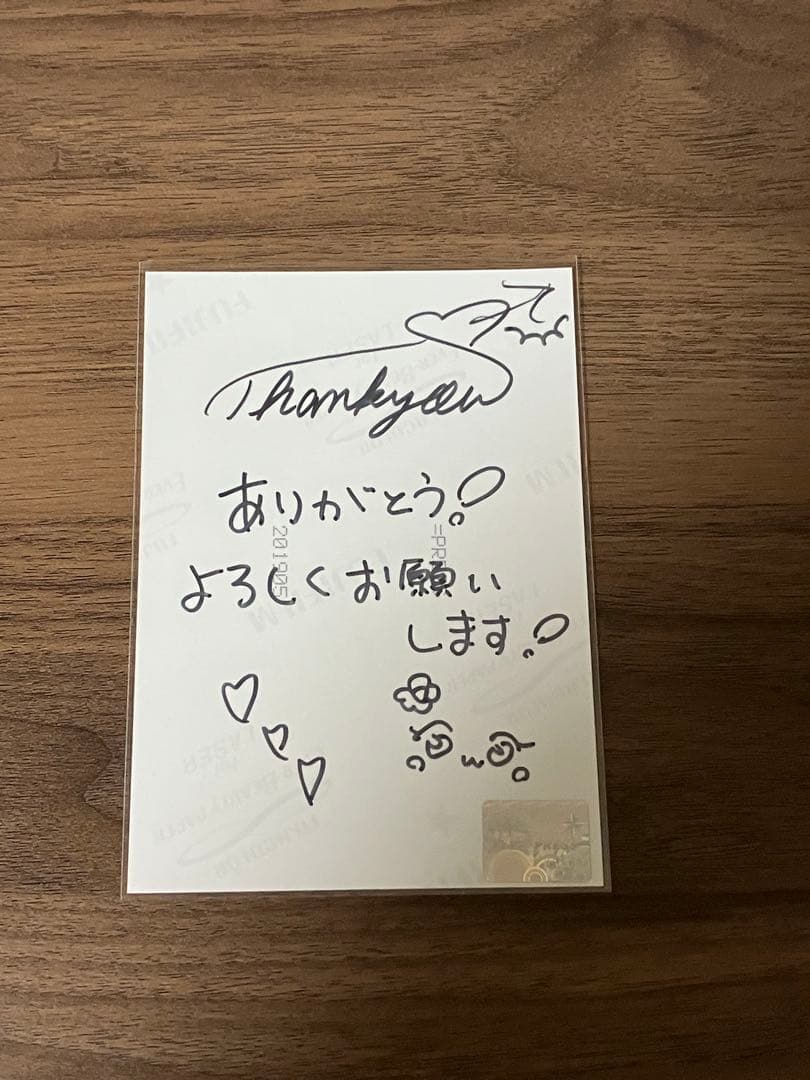 Thank you
ありがとう!
よろしくお願い
します!
201905
=PR
FUJIFILM